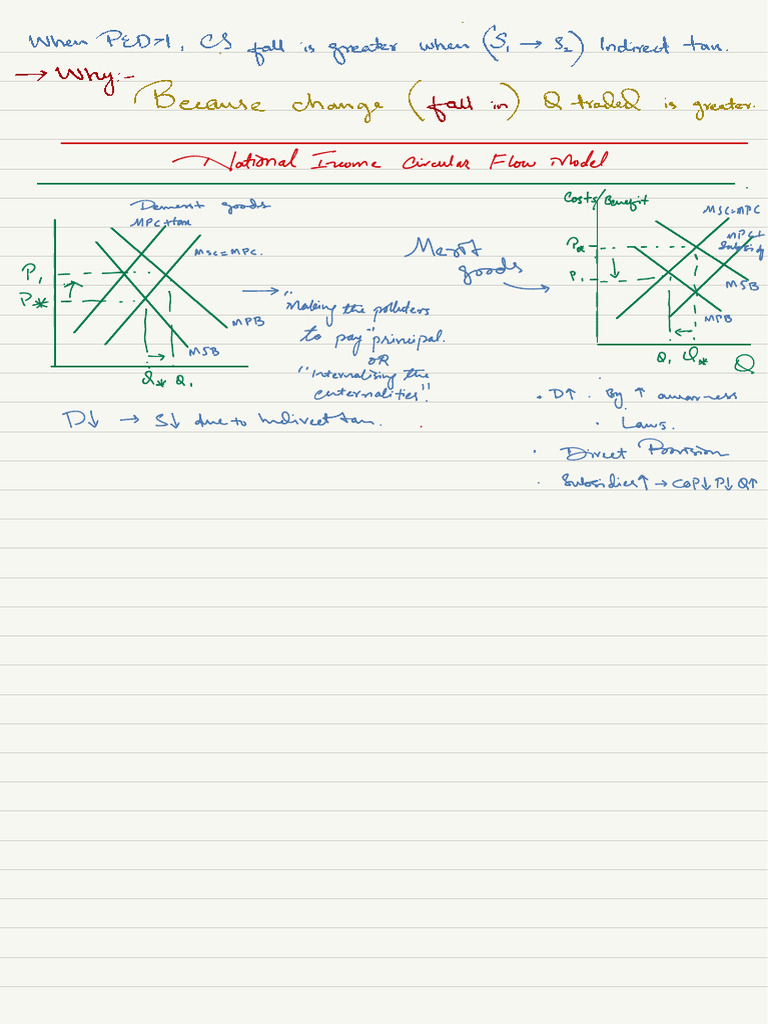 When PED>1, CS fall is greater when (S₁ → S₂) Indirect tax.
→ Why:-
Because change (fall in) Q traded is greater.
National Income Circular Flow Model
Demerit goods
MPC+tax
MSC=MPC.
P₁
P*
MPB
MSB
Q* Q₁
D↓ → S↓ due to Indirect tax.
"Making the polluders
to pay" principal.
OR
"Internalising the
externalities".
Merit
goods
Costs/Benefit
MSC=MPC
MPC+
Subsidy
P*
P₁
MSB
MPB
Q₁ Q* Q
• D↑. By ↑ awarness
• Laws.
• Direct Provision
• Subsidies↑ → COP↓ P↓ Q↑